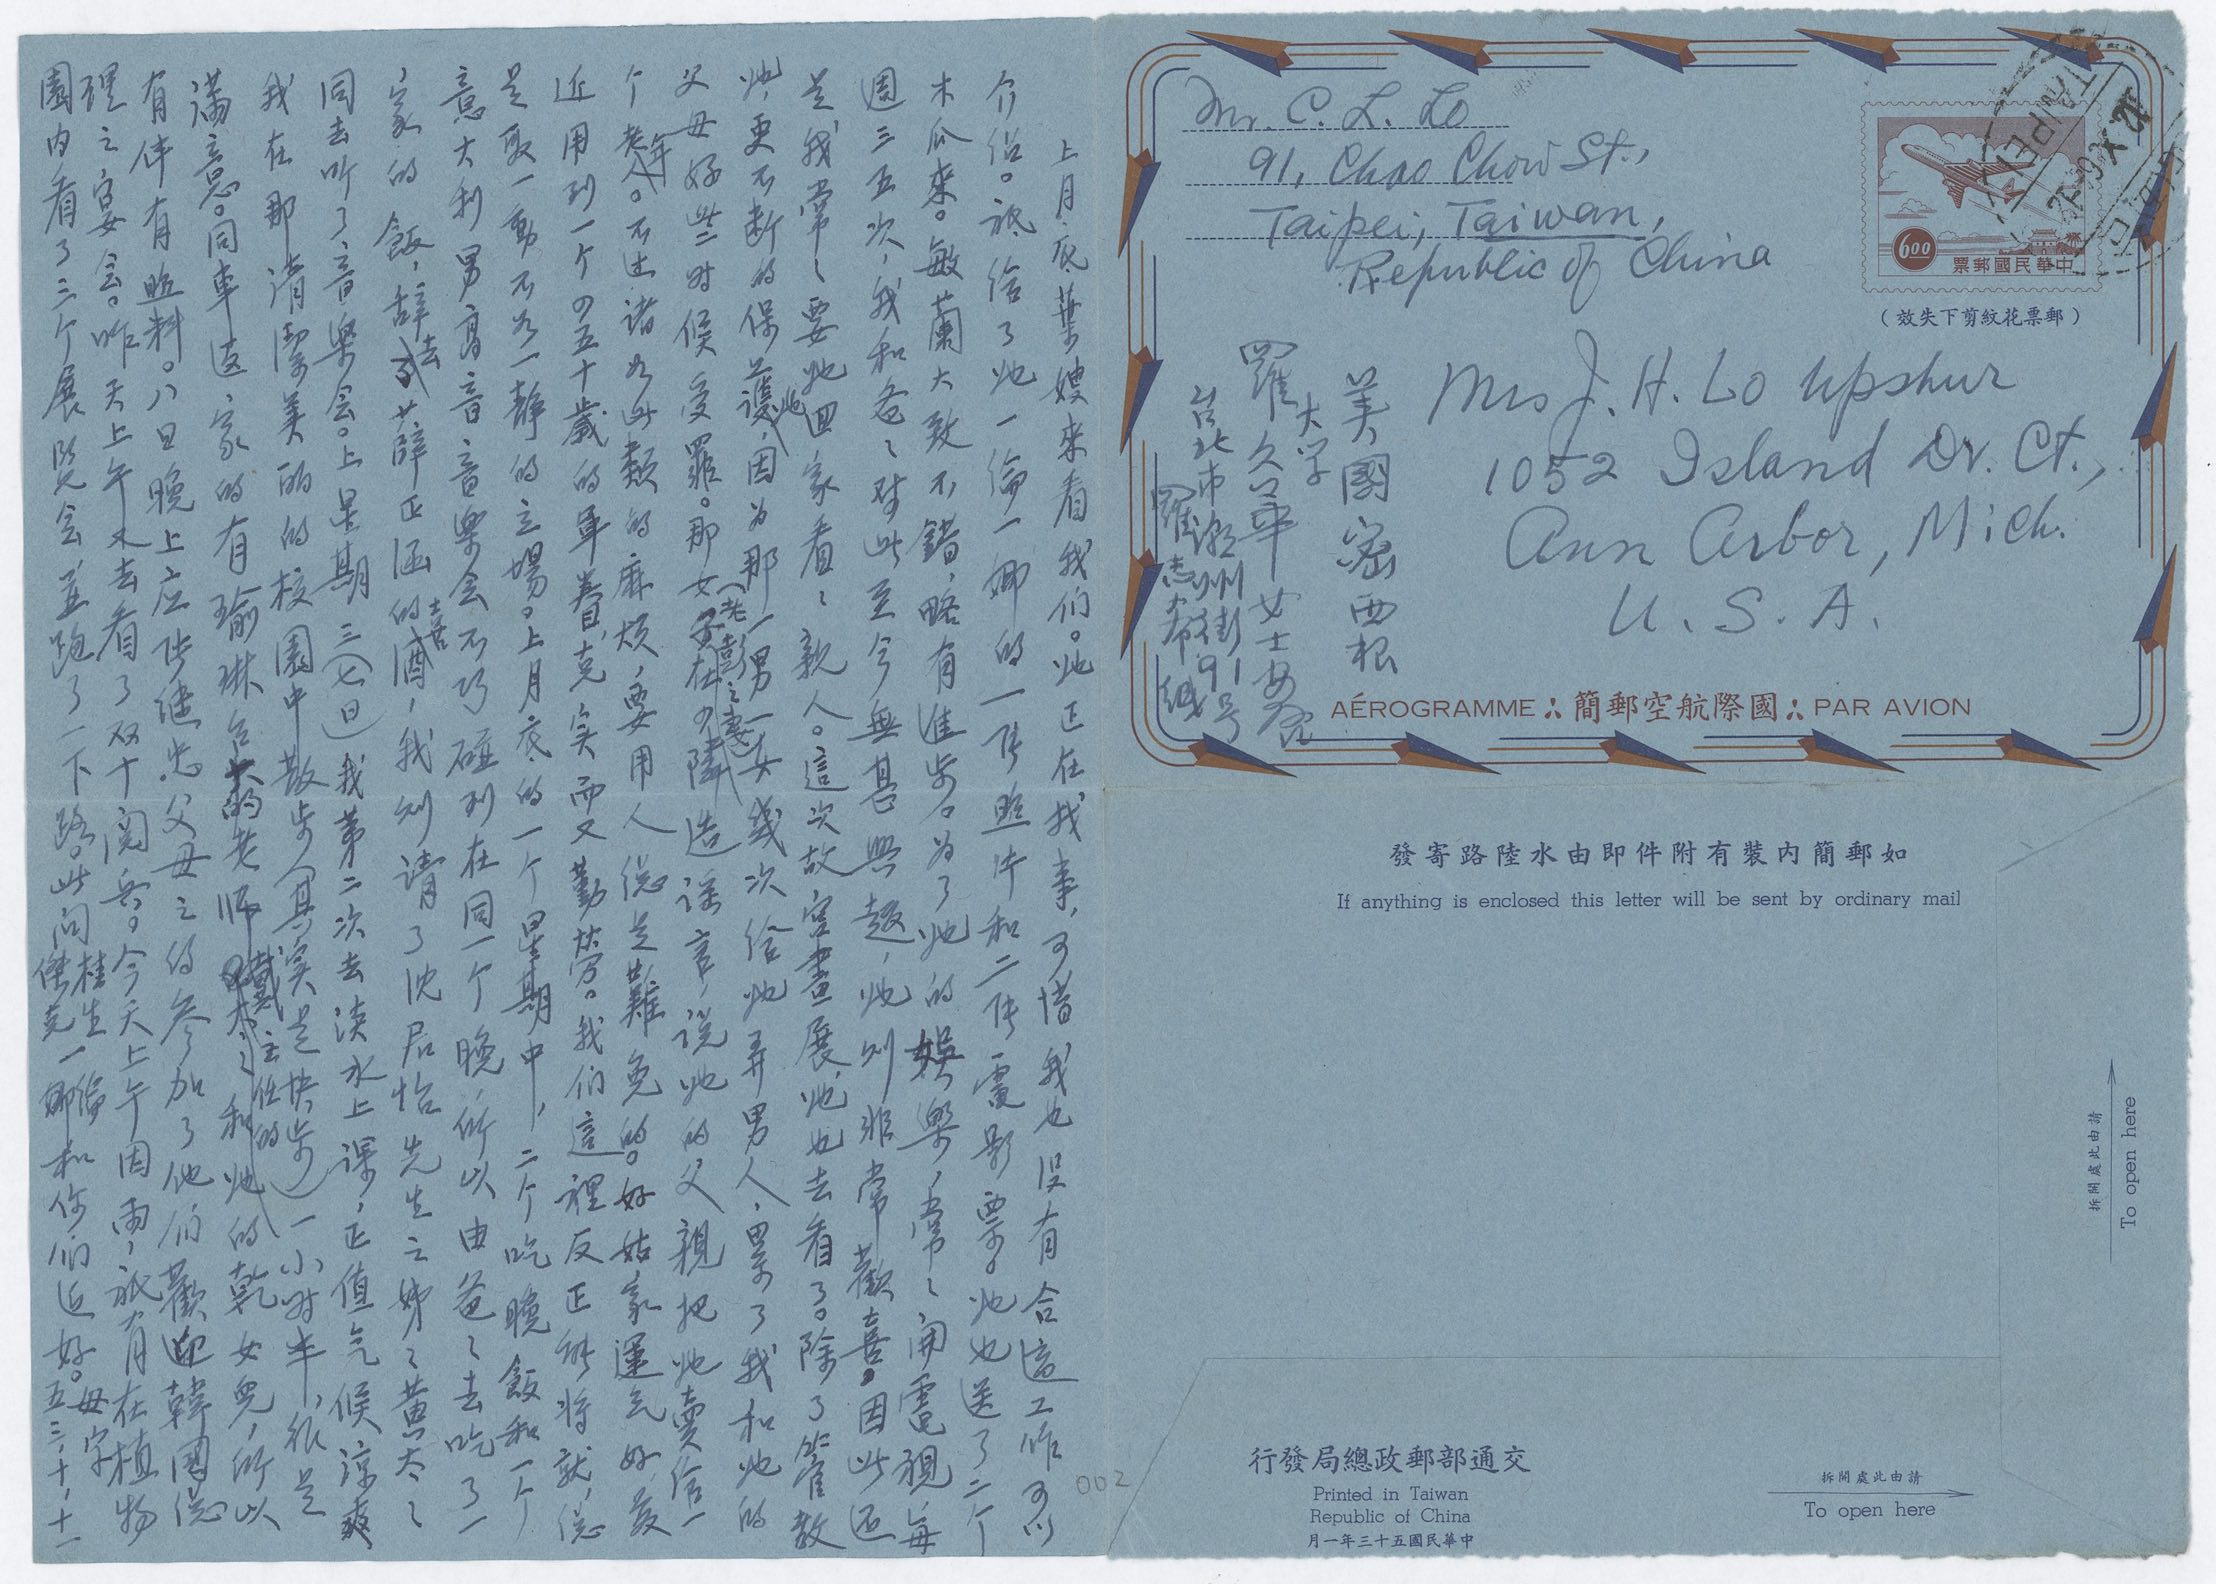 Mr. C. L. Lo
91, Chao Chow St.,
Taipei, Taiwan,
Republic of China
TAIPEI
600
票郵國民華中
（效失下剪紋花票郵）
Mrs J. H. Lo Upshur
1052 Island Dr. Ct.,
Ann Arbor, Mich.
U. S. A.
美國密西根
大学
羅久華女士安啓
台北市潮州街91号
羅志希緘
AÉROGRAMME 簡郵空航際國 PAR AVION
發寄路陸水由即件附有裝內簡郵如
If anything is enclosed this letter will be sent by ordinary mail
拆開處此由請
To open here
行發局總政郵部通交
Printed in Taiwan
Republic of China
月一年三十五國民華中
拆開處此由請
To open here
002
上月底葉嫂來看我们。她正在找事，可惜我也没有合适工作可以
介绍。祗给了她一倫一娜的一張照片和二張電影票。她也送了二个
木瓜來。敏蘭大致不錯，略有進步。为了她的娛樂，常々開電視每
週三五次，我和爸々对此至今無甚興趣，她则非常歡喜。因此还
是我常々要她回家看々親人。這次故宮畫展她也去看了。除了管教
她，更不断的保護她，因为那一男一女幾次给她弄男人，累了我和她的
父母好些时候受罪。那女子（老彭之妻）在四隣造谣言，说她的父親把她賣给一
个老年人。不过诸如此類的麻烦，要用人總是難免的。好姑家運气好，最
近用到一个四五十歲的軍眷，克实而又勤劳。我们這裡反正能将就，總
是取一動不如一静的立場。上月底的一个星期中，二个吃晚飯和一个
意大利男高音音樂会不巧碰到在同一个晚，所以由爸々去吃了一
家的飯，辞去薛正函的喜酒，我则请了沈君怡先生之姊々黄太々
同去听了音樂会。上星期三（七日）我第二次去淡水上課，正值气候涼爽
我在那清潔美丽的校園中散步（其实是快步）一小时半，很是
滿意。同車返家的有瑜琳台大的老师戴主任的太々和她的乾女兒，所以
有伴有照料。八日晚上应張继忠父母之约参加了他们歡迎韓國總
理之宴会。昨天上午又去看了双十閱兵。今天上午因雨，祗有在植物
園内看了三个展览会並跑了一下路。此问
桂生 傑克 一倫 一娜和你们近好。母字
五三、十、十一